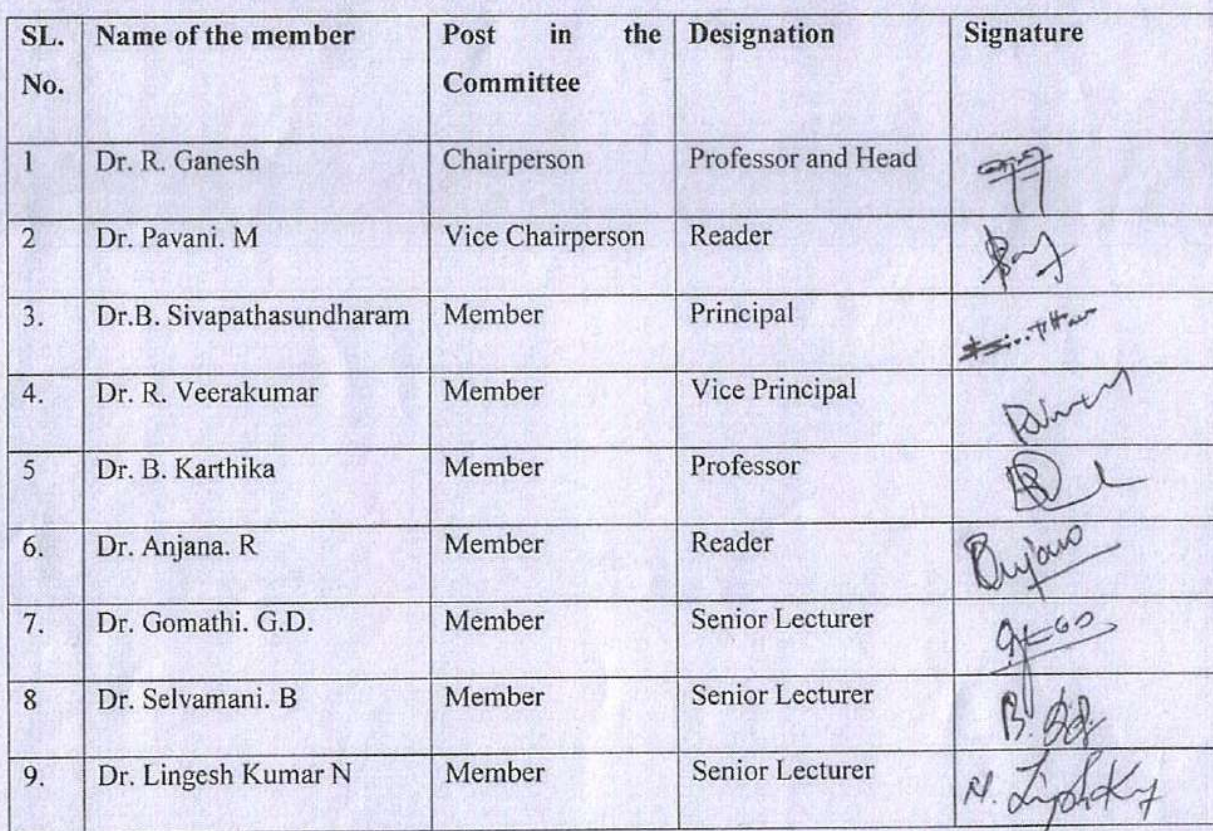 SL. No. Name of the member Post in the Committee Designation Signature
1 Dr. R. Ganesh Chairperson Professor and Head
2 Dr. Pavani. M Vice Chairperson Reader
3. Dr.B. Sivapathasundharam Member Principal
4. Dr. R. Veerakumar Member Vice Principal
5 Dr. B. Karthika Member Professor
6. Dr. Anjana. R Member Reader
7. Dr. Gomathi. G.D. Member Senior Lecturer
8 Dr. Selvamani. B Member Senior Lecturer
9. Dr. Lingesh Kumar N Member Senior Lecturer